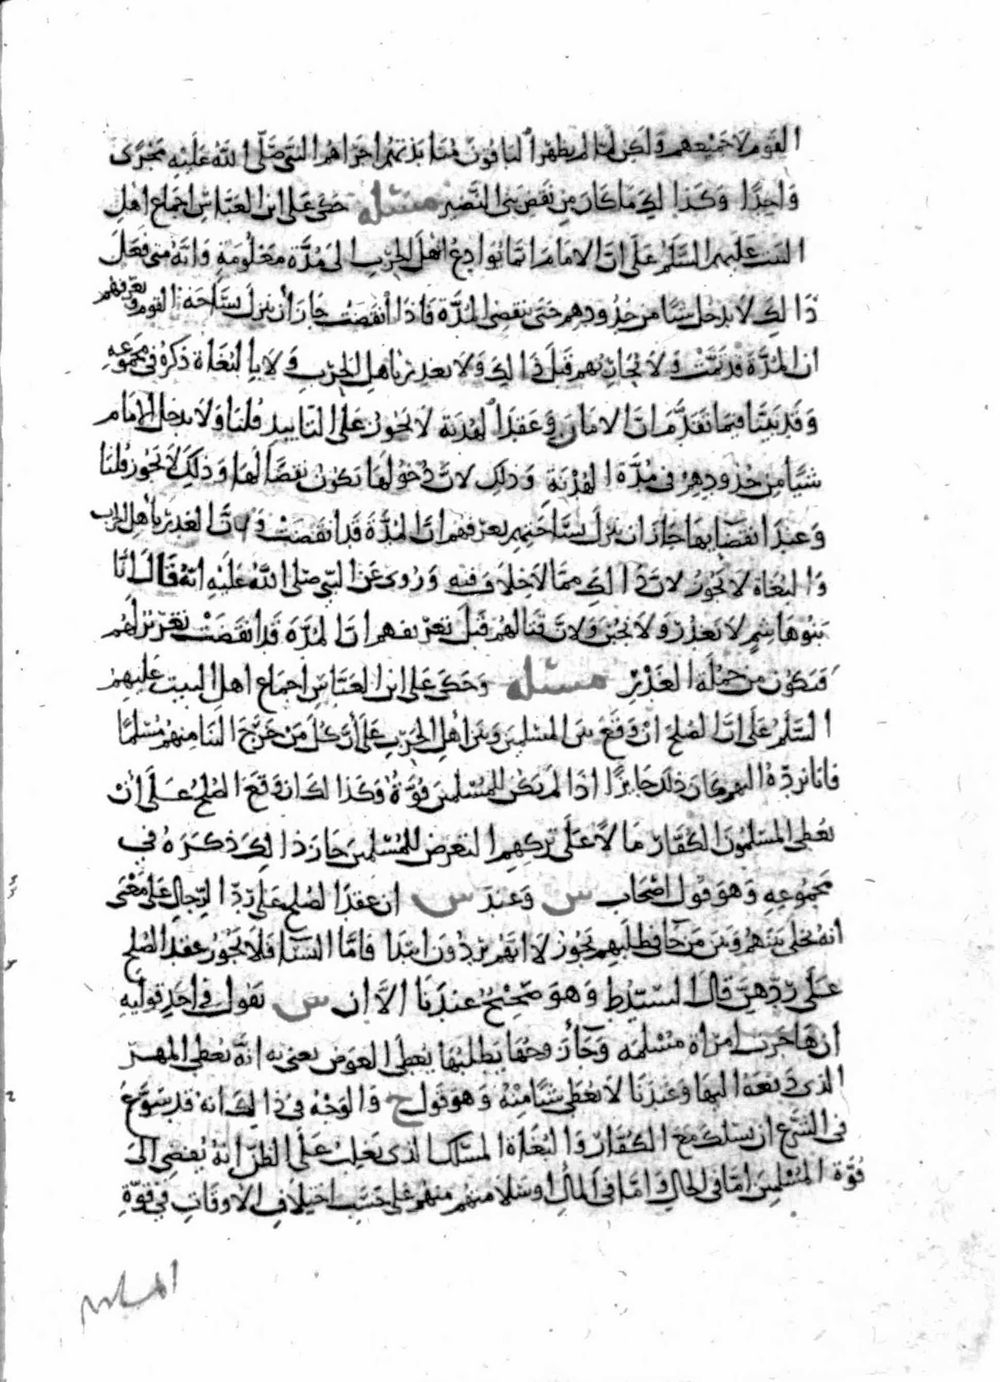 القوم لا جميعهم ولكن لما لم يظهر الباقون منابذتهم اجراهم النبي صلى الله عليه مجرى
واحدا وكذلك ما كان من نقض بني النضير مسئله حكى علي ابن العباس اجماع اهل
البيت عليهم السلم على ان الامام انما يوادع اهل الحرب الى مدة معلومة وانه متى فعل
ذالك لا يدخل شيا من حدودهم حتى تنقضي المدة فاذا انقضت جاز ان ينزل بساحة القوم ويعرفهم
ان المدة قد تمت ولا يحاربهم قبل ذالك ولا يغدر باهل الحرب ولا بالبغاة ذكره في مجموعه
وقد بينا فيما تقدم ان الامان وعقد الهدنة لا يجوز على التابيد قلنا ولا يدخل الامام
شيا من حدودهم في مدة الهدنة وذلك لان دخولها يكون نقضا لها وذلك لا يجوز قلنا
وعند انقضايها جاز ان ينزل بساحتهم يعرفهم ان المدة قد انقضت وان الغدر باهل الحرب
والبغاة لا يجوز لان ذالك مما لا خلاف فيه وروى عن النبي صلى الله عليه انه قال انا
بنوا هاشم لا نغدر ولا نجبن ولان قتالهم قبل تعريفهم ان المدة قد انقضت تغرير لهم
فيكون من جملة الغدر مسئله وحكى علي ابن العباس اجماع اهل البيت عليهم
السلم على ان الصلح ان وقع بين المسلمين وبين اهل الحرب على ان كل من خرج الينا منهم مسلما
فانا نرده اليهم كان ذلك جايزا اذا لم يكن للمسلمين قوة وكذالك ان وقع الصلح على ان
يعطي المسلمون الكفار مالا على تركهم التعرض للمسلمين جاز ذالك ذكره في
مجموعه وهو قول اصحاب ش وعند ش ان عقد الصلح على رد الرجال على معنى
انه يخلى بينهم وبين من جا في طلبهم يجوز لا انهم يردون ابتدا فاما النسا فلا يجوز عقد الصلح
على ردهن قال السيد ط وهو صحيح عندنا الا ان ش يقول في احد قوليه
ان هاجرت امراة مسلمه وجا زوجها يطلبها يعطى العوض يعني به انه يعطى المهر
الذي دفعه اليها وعندنا لا يعطى شيا منه وهو قول ح والوجه في ذالك انه قد يسوغ
في الشرع ان يسلك مع الكفار والبغاة المسلك الذي يغلب على الظن انه يفضي الى
قوة المسلمين اما في الحال واما في المال او سلامتهم منهم على حسب اختلاف الاوقات في قوة
المسلمين